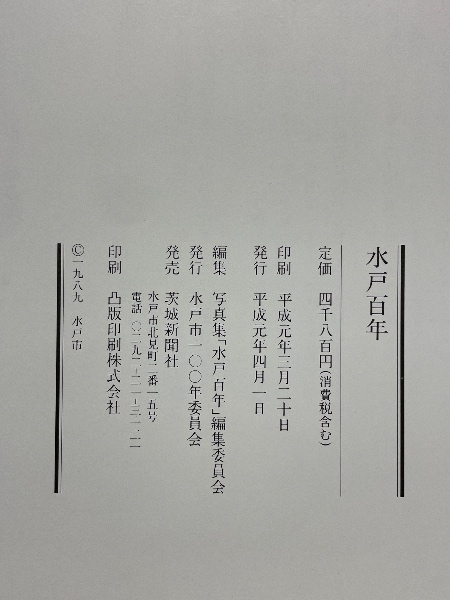 水戸百年
定価 四千八百円(消費税含む)
印刷 平成元年三月二十日
発行 平成元年四月一日
編集 写真集「水戸百年」編集委員会
発行 水戸市一〇〇年委員会
発売 茨城新聞社
水戸市北見町二番一五号
電話 〇二九二―二一―三一二一
印刷 凸版印刷株式会社
Ⓒ一九八九 水戸市